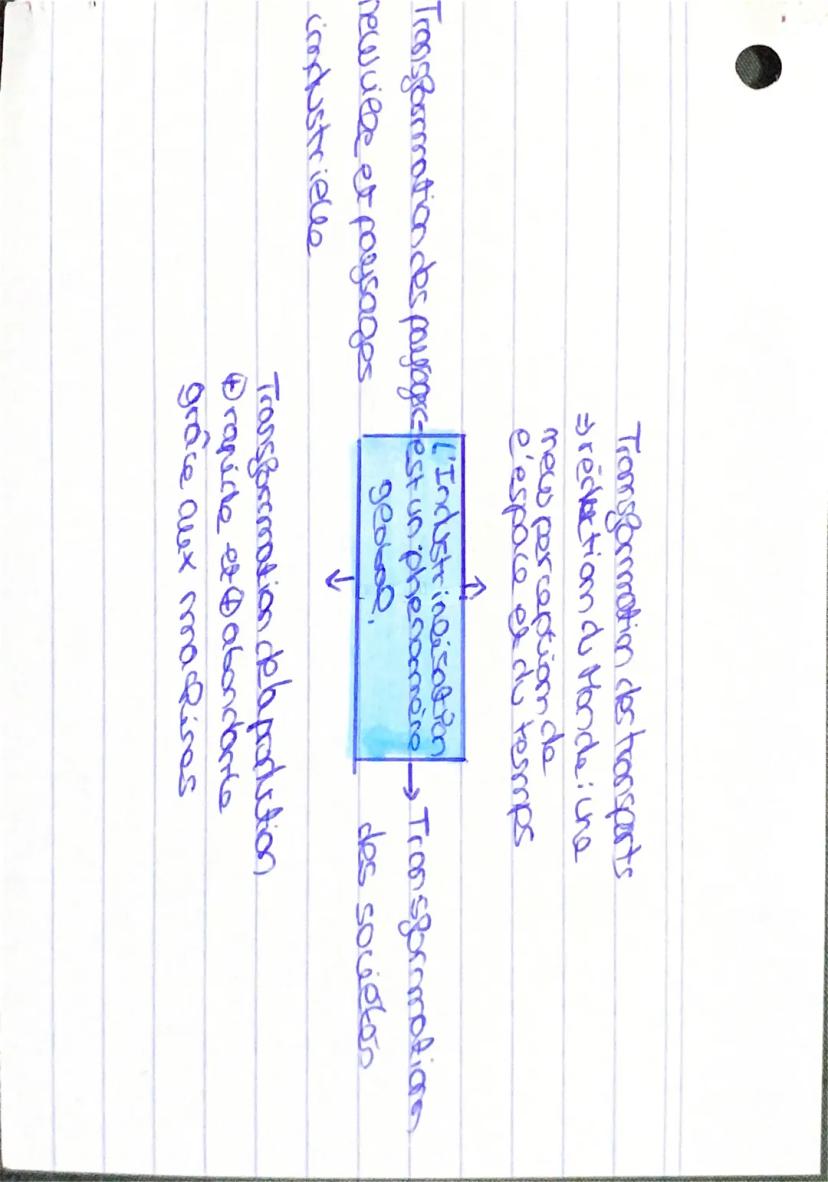 Transformation des transports
⇒ réduction du Monde : une
new perception de
l'espace et du temps
Transformation des paysages
new ville et paysages
industrielle
L'Industrialisation
est un phénomère
global.
Transformation
des sociétés
Transformation de la production
⊕ rapide et ⊕ abondante
grâce aux machines